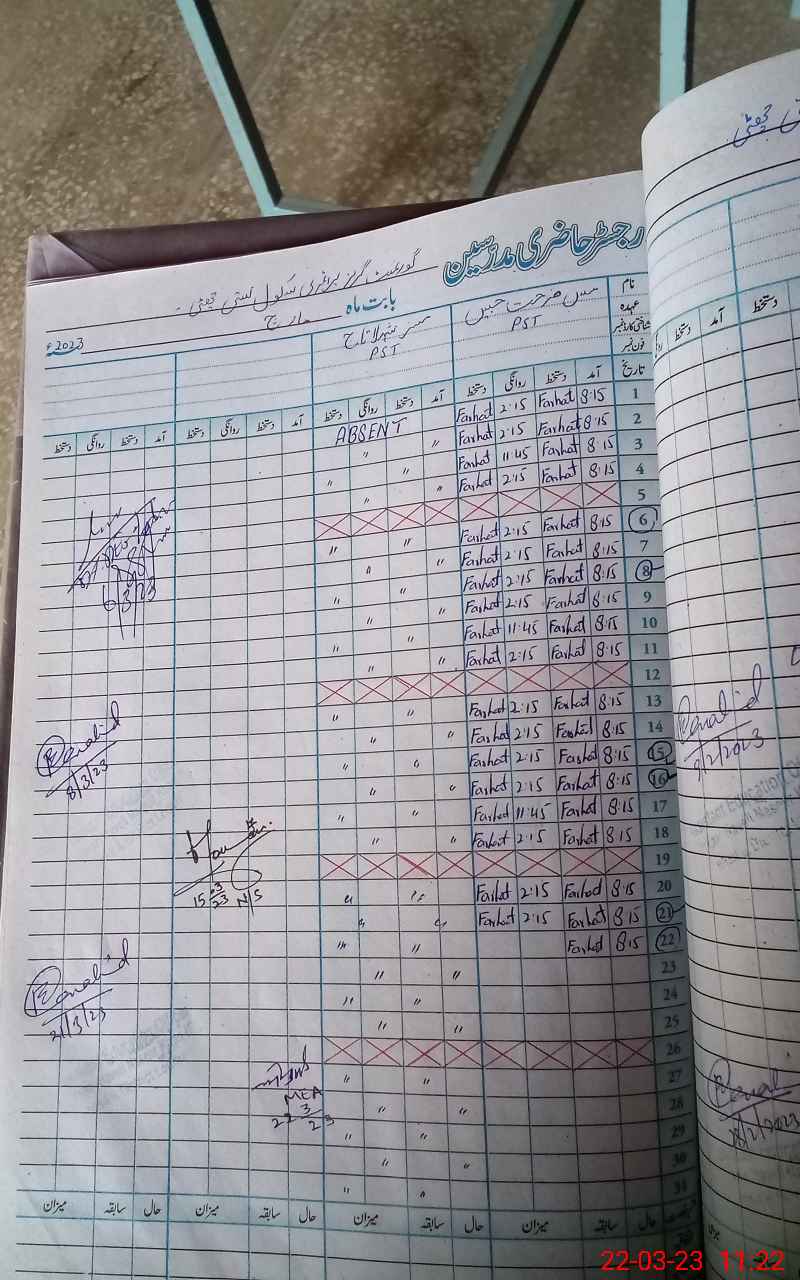 رجسٹر حاضری مدرسین
گورنمنٹ گرلز پرائمری سکول بستی
بابت ماہ مارچ 2023ء
نام
عہدہ
شناختی کارڈ نمبر
فون نمبر
مس فرحت جبیں
PST
مسز شہلا تاج
PST
تاریخ آمد دستخط روانگی دستخط آمد دستخط روانگی دستخط آمد دستخط روانگی دستخط آمد دستخط روانگی دستخط
1 8:15 Farhat 2:15 Farhat ABSENT
2 8:15 Farhat 2:15 Farhat "
3 8:15 Farhat 11:45 Farhat " "
4 8:15 Farhat 2:15 Farhat " "
5
6 8:15 Farhat 2:15 Farhat " "
7 8:15 Farhat 2:15 Farhat " "
8 8:15 Farhat 2:15 Farhat " "
9 8:15 Farhat 2:15 Farhat " "
10 8:15 Farhat 11:45 Farhat " "
11 8:15 Farhat 2:15 Farhat " "
12
13 8:15 Farhat 2:15 Farhat " "
14 8:15 Farhat 2:15 Farhat " "
15 8:15 Farhat 2:15 Farhat " "
16 8:15 Farhat 2:15 Farhat " "
17 8:15 Farhat 11:45 Farhat " "
18 8:15 Farhat 2:15 Farhat " "
19
20 8:15 Farhat 2:15 Farhat " "
21 8:15 Farhat 2:15 Farhat " "
22 8:15 Farhat " "
23 " "
24 " "
25 " "
26
27 " "
28 " "
29 " "
30 " "
31 " "
حال سابقہ میزان حال سابقہ میزان حال سابقہ میزان حال سابقہ میزان
6/3/23
8/3/23
15/03/23 N/S
21/3/23
MEA
22/3/23
آمد دستخط
دستخط
9/2/2023
28/2/2023
22-03-23 11:22